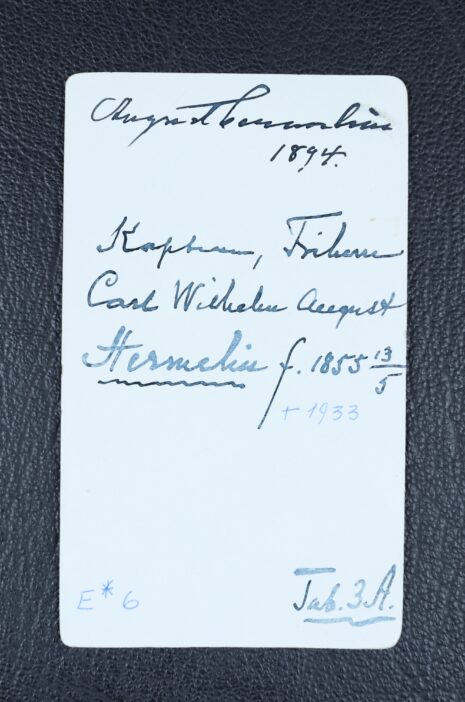 August Hermelin
1894.
Kapten, Friherre
Carl Wilhelm August
Hermelin f. 1855 13/5
+ 1933
E* 6
Tab. 3A.